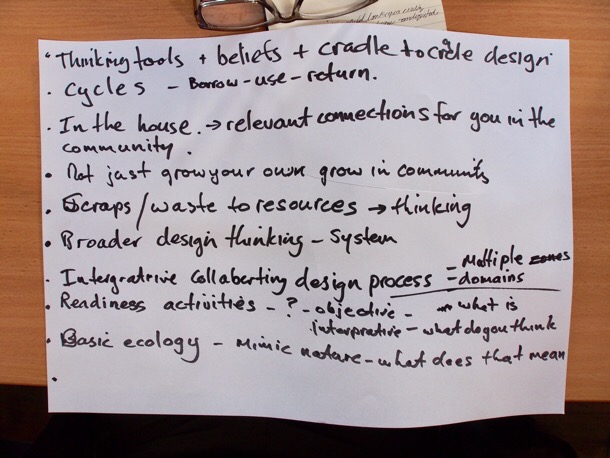 • Thinking tools + beliefs + cradle to cradle design
• Cycles - Borrow - use - return.
• In the house. → relevant connections for you in the
community.
• Not just grow your own grow in community
• Scraps/waste to resources → thinking
• Broader design thinking - System
• Intergratrive Collaberting design process = Multiple zones
= domains
• Readiness activities - ? - objective - what is
interpretive - what do you think
• Basic ecology - Mimic nature - what does that mean
•